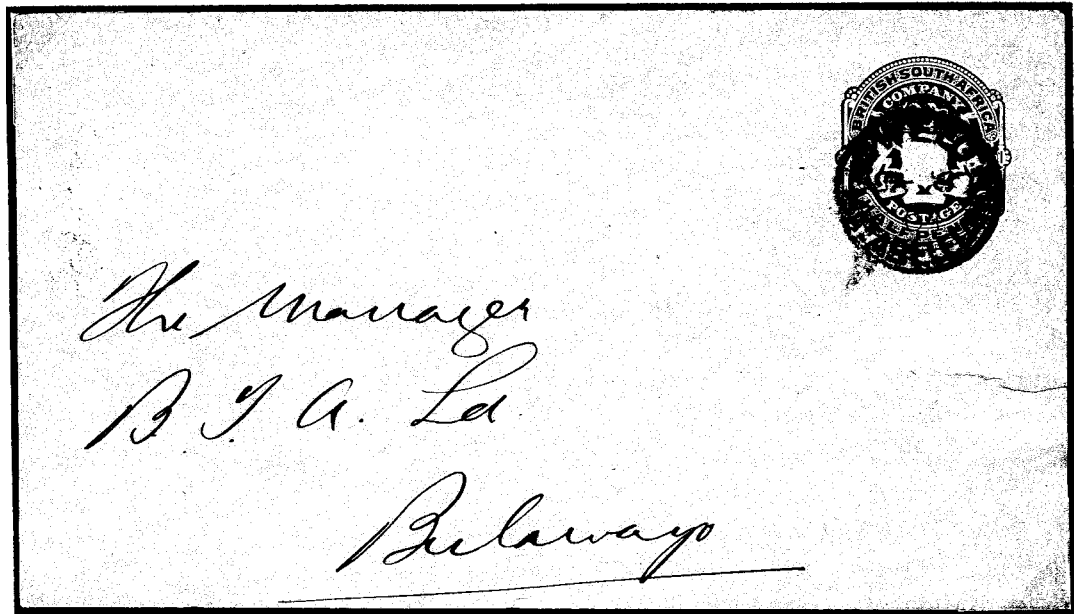 BRITISH SOUTH AFRICA
COMPANY
POSTAGE
The Manager
B. T. A. Ld.
Bulawayo